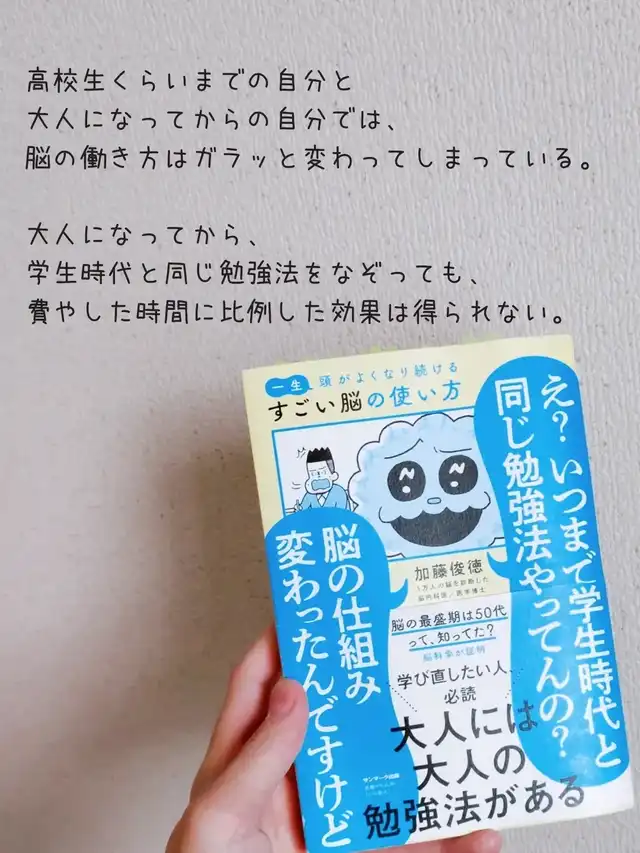 高校生くらいまでの自分と
大人になってからの自分では、
脳の働き方はガラッと変わってしまっている。
大人になってから、
学生時代と同じ勉強法をなぞっても、
費やした時間に比例した効果は得られない。
一生、頭がよくなり続ける
すごい脳の使い方
え？いつまで学生時代と
同じ勉強法やってんの？
脳の仕組み
変わったんですけど
加藤俊徳
1万人の脳を診断した
脳内科医／医学博士
脳の最盛期は50代
って、知ってた？
脳科学が証明
学び直したい人、
必読
大人には
大人の
勉強法がある
サンマーク出版